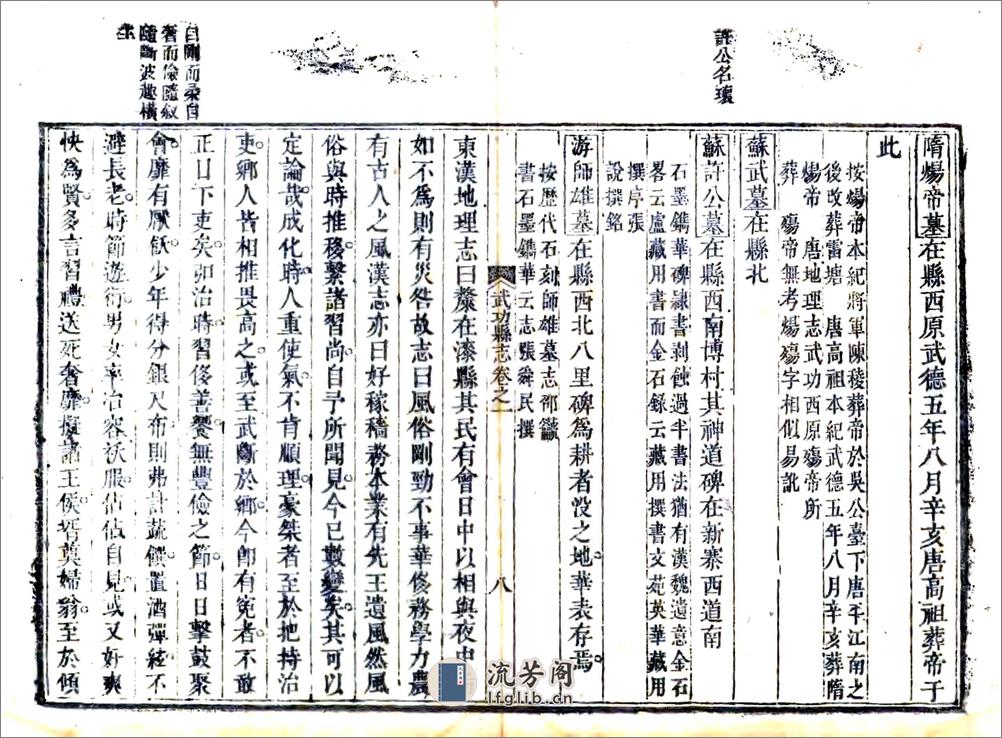 許公名瓌
隋煬帝墓在縣西原武德五年八月辛亥唐高祖葬帝于
此
按煬帝本紀將軍陳稜葬帝於吳公臺下唐平江南之
後改葬雷塘 唐高祖本紀武德五年八月辛亥葬隋
煬帝 唐地理志武功西原殤帝所
葬 殤帝無考煬殤字相似易訛
蘇武墓在縣北
蘇許公墓在縣西南博村其神道碑在新寨西道南
石墨鐫華碑隷書剥蝕過半書法猶有漢魏遺意金石
畧云盧藏用書而金石錄云藏用撰書文苑英華藏用
撰序張
說撰銘
游師雄墓在縣西北八里碑爲耕者没之地華表存焉
按歷代石刻師雄墓志邵𪚲
書石墨鐫華云志張舜民撰
武功縣志卷之一
八
東漢地理志曰斄在漆縣其民有會日中以相與夜中
如不爲則有災咎故志曰風俗剛勁不事華侈務學力農
有古人之風漢志亦曰好稼穡務本業有先王遺風然風
俗與時推移繫諸習尚自予所聞見今已數變矣其可以
定論哉成化時人重使氣不肯順理豪桀者至於把持治
吏鄉人皆相推畏高之或至武斷於鄉今卽有寃者不敢
正目下吏矣弘治時習侈善饗無豐儉之節日日擊鼓聚
會靡有厭飫少年得分銀尺布則弗計蔬饌置酒彈絃不
避長老時節遊衍男女率冶容袨服佔佔自見或又好爽
快爲賢多言習禮送死奢靡擬諸王侯壻奠婦翁至於傾
自剛而柔自
奢而儉隨叙
隨斷波趣橫
生
流芳阁
lfglib.cn